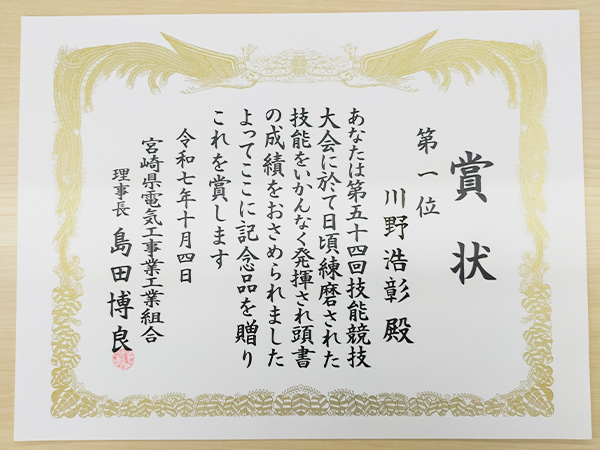 賞状
第一位
川野浩彰殿
あなたは第五十四回技能競技
大会に於て日頃練磨された
技能をいかんなく発揮され頭書
の成績をおさめられました
よってここに記念品を贈り
これを賞します
令和七年十月四日
宮崎県電気工事業工業組合
理事長 島田博良